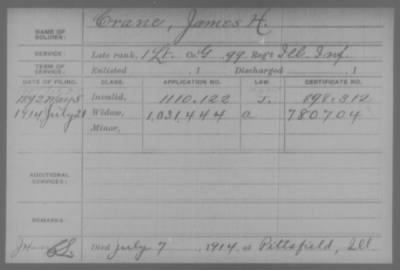 NAME OF SOLDIER: Crane, James H.
SERVICE: Late rank, 1 Lt. Co. G, 99 Reg't Ill. Inf.
TERM OF SERVICE: Enlisted , 1 Discharged , 1
DATE OF FILING. CLASS. APPLICATION NO. LAW. CERTIFICATE NO.
1892 Invalid, 1110.122 J. 898.312
1914 July 21 Widow, 1,031,444 a 780.704
Minor,
ADDITIONAL SERVICES:
REMARKS:
Died July 7, 1914, at Pittsfield, Ill.